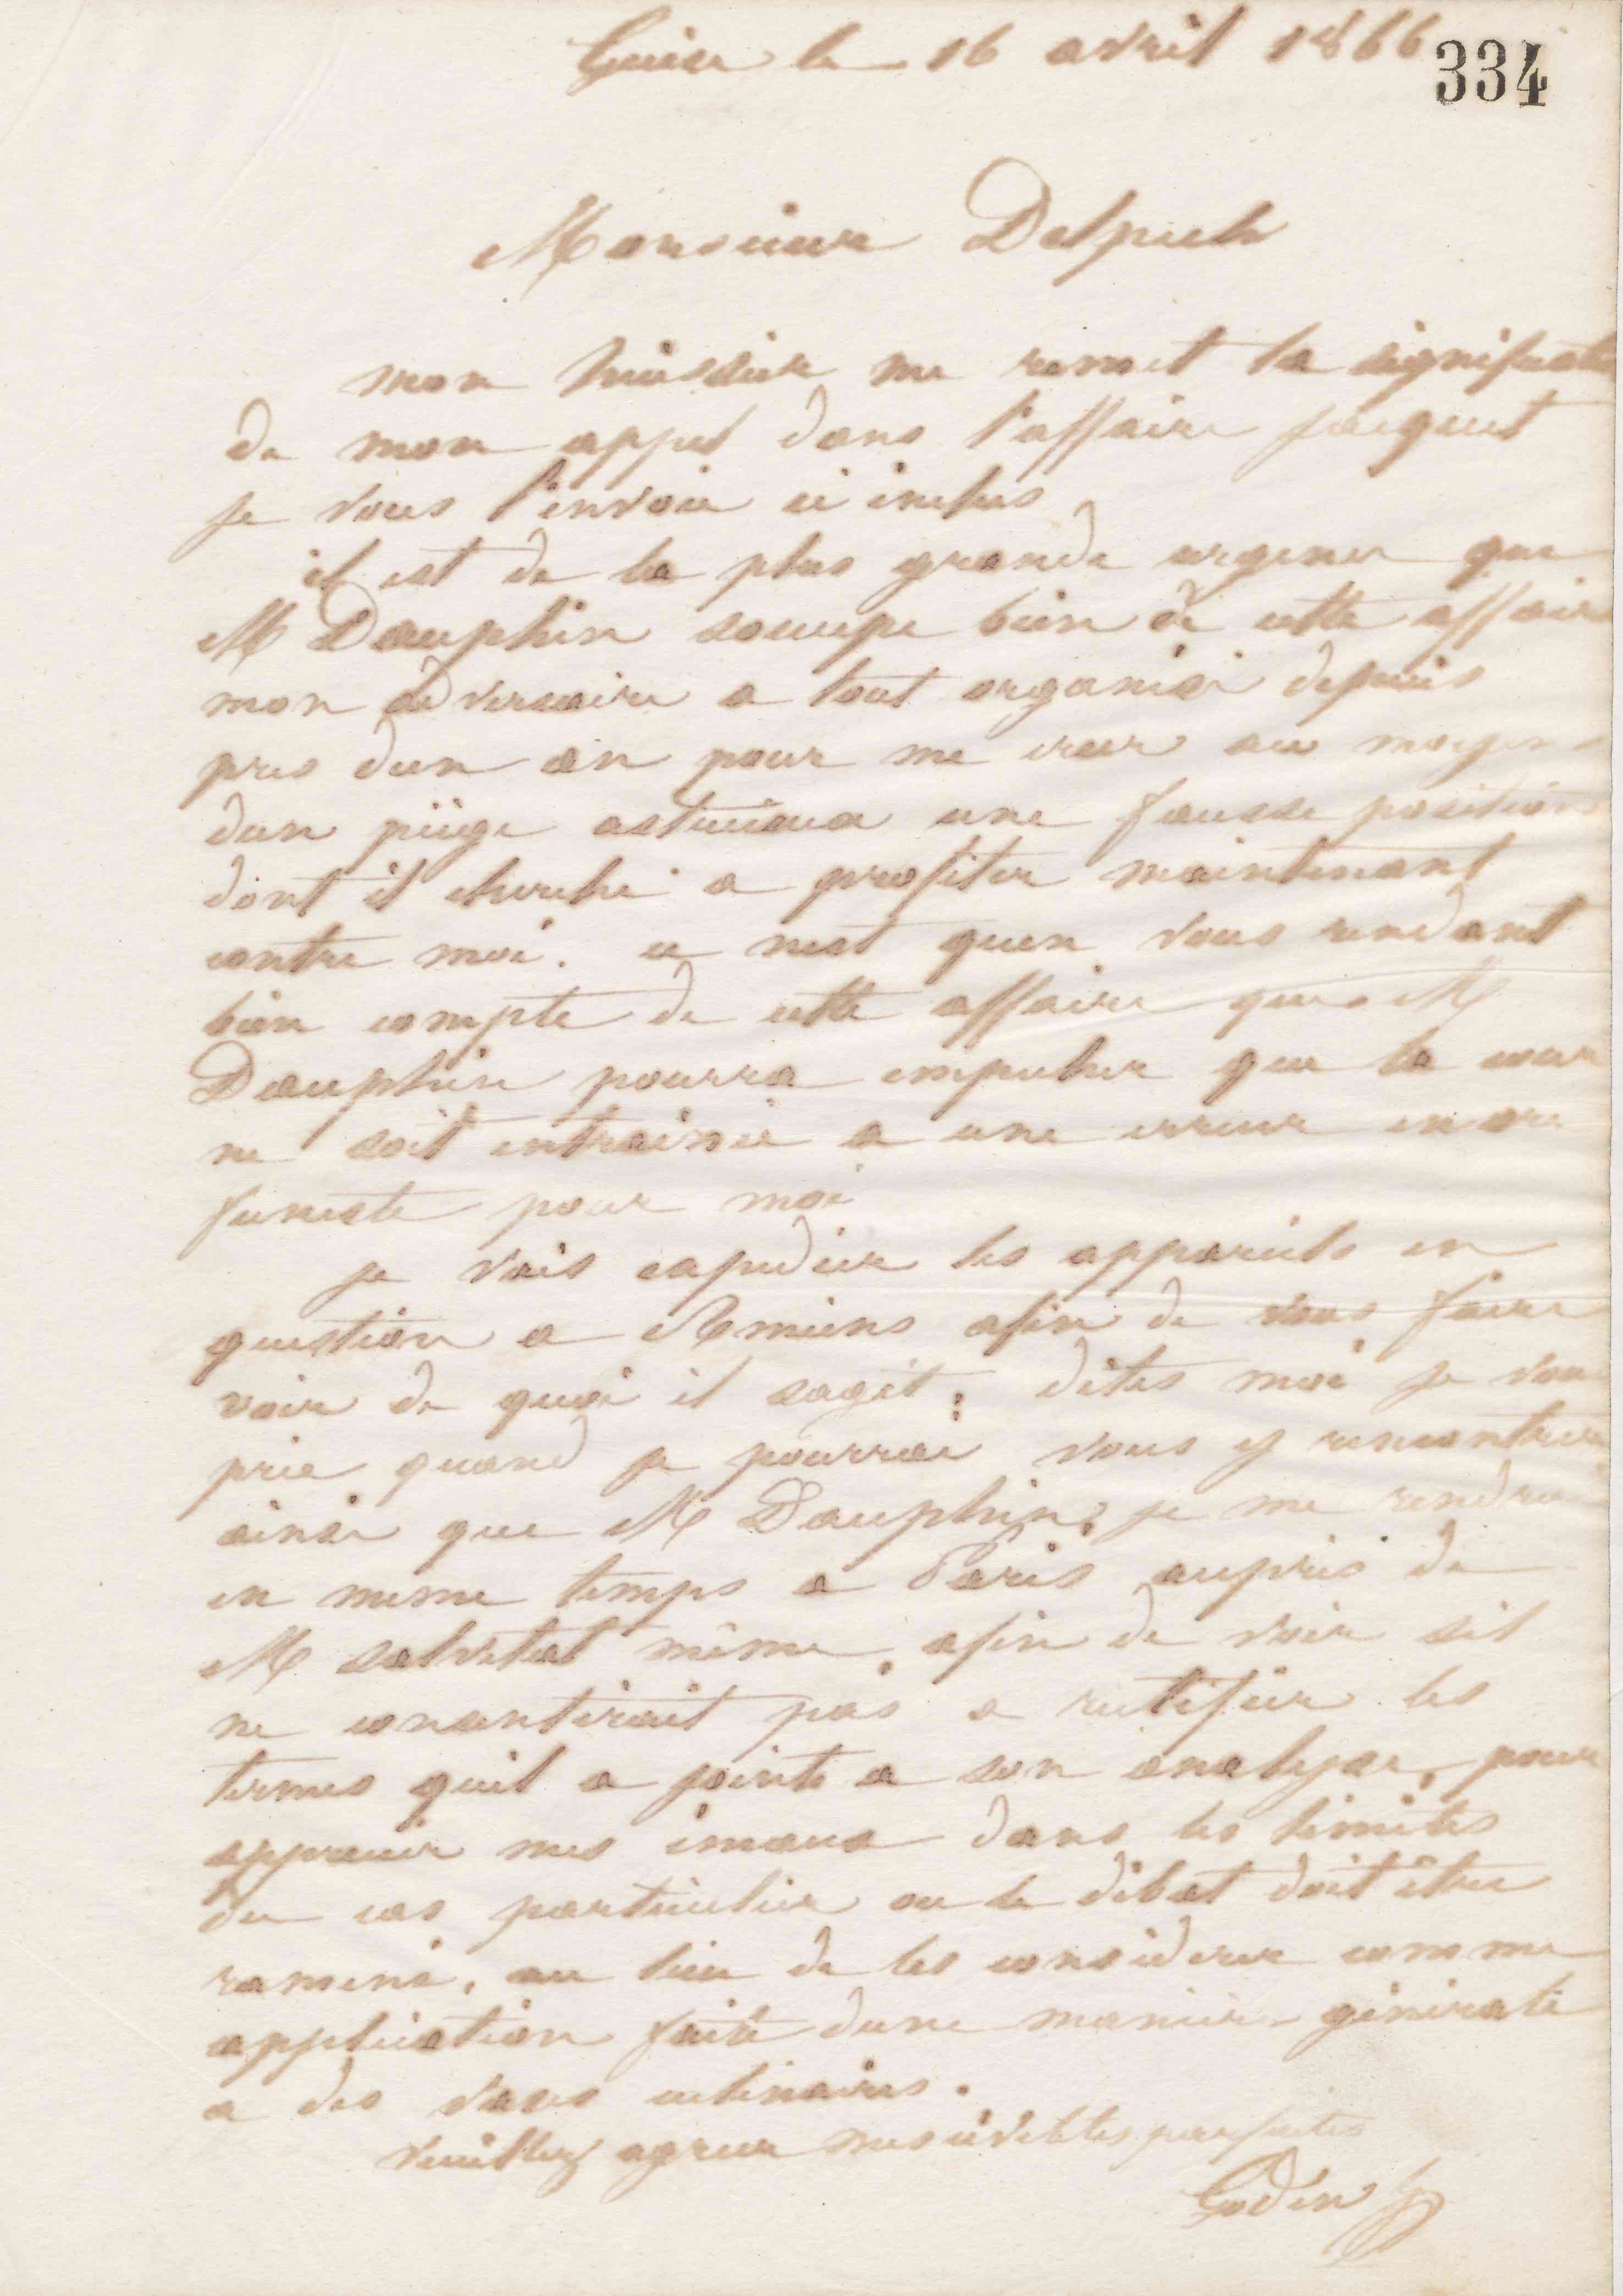 Guise le 16 avril 1866
334
Monsieur Delpech
mon huissier me remet la signification
de mon appel dans l'affaire jacquet
je vous l'envoie ci inclus
il est de la plus grande urgence que
M Dauphin socupe bien de cette affaire
mon adversaire a tout organisé depuis
pres dun an pour me creer au moyen
dun piège astucieux une fausse position
dont il cherche a profiter maintenant
contre moi. ce nest quen vous rendant
bien compte de cette affaire que M
Dauphin pourra empecher que la cour
ne soit entrainée a une erreur encore
funeste pour moi
je vais expedier les appareils en
question a Amiens afin de vous faire
voir de quoi il sagit; dites moi je vous
prie quand je pourrai vous y rencontrer
ainsi que M Dauphin; je me rendrai
en meme temps a Paris auprès de
M salvetat même, afin de voir sil
ne consentirait pas a rectifier les
termes quil a joints a son analyse, pour
apprecier mes émaux dans les limites
du cas particulier ou le débat doit être
ramené, au lieu de les considerer comme
application faite dune manière générale
a des vases culinaires.
Veuillez agreer mes civilités parfaites
Godin